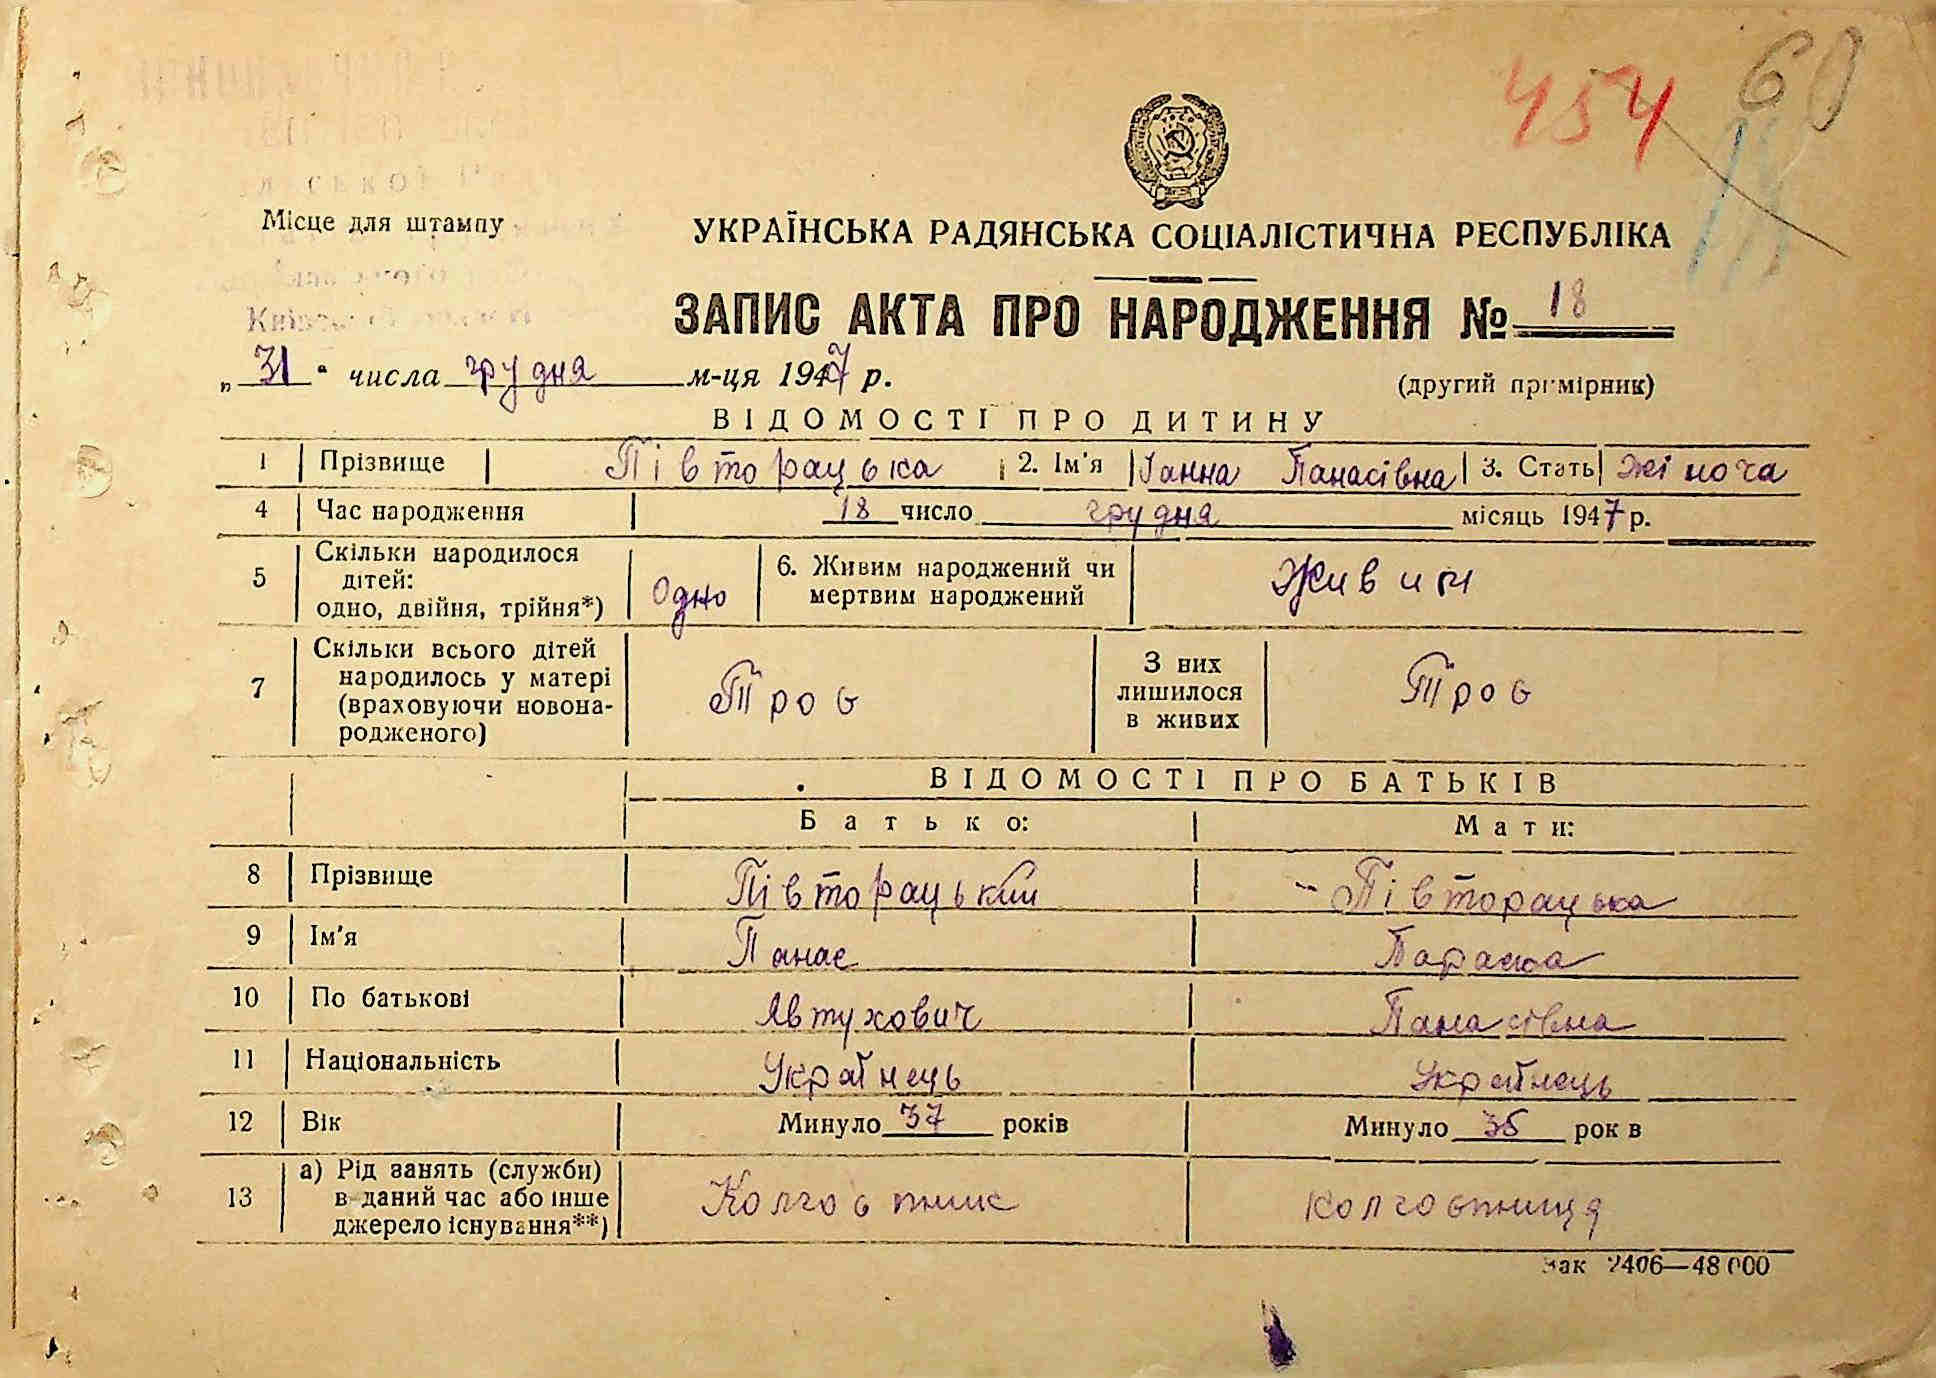 454 60
Місце для штампу
УКРАЇНСЬКА РАДЯНСЬКА СОЦІАЛІСТИЧНА РЕСПУБЛІКА
ЗАПИС АКТА ПРО НАРОДЖЕННЯ № 18
„31“ числа грудня м-ця 1947 р.
(другий примірник)
ВІДОМОСТІ ПРО ДИТИНУ
1 Прізвище Півторацька 2. Ім'я Ганна Панасівна 3. Стать жіноча
4 Час народження 18 число грудня місяць 1947 р.
5 Скільки народилося дітей: одно, двійня, трійня*) Одно 6. Живим народжений чи мертвим народжений Живим
7 Скільки всього дітей народилось у матері (враховуючи новонародженого) Троє З них лишилося в живих Троє
ВІДОМОСТІ ПРО БАТЬКІВ
Батько: Мати:
8 Прізвище Півторацький Півторацька
9 Ім'я Панас Параска
10 По батькові Явтухович Панасівна
11 Національність Українець Українець
12 Вік Минуло 37 років Минуло 35 рок в
13 а) Рід занять (служби) в даний час або інше джерело існування**) Колгоспник колгоспниця
Зак 2406—48000